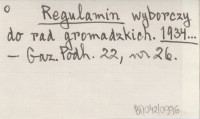 Regulamin wyborczy
do rad gromadzkich. 1934...
— Gaz. Podh. 22, nr 26.